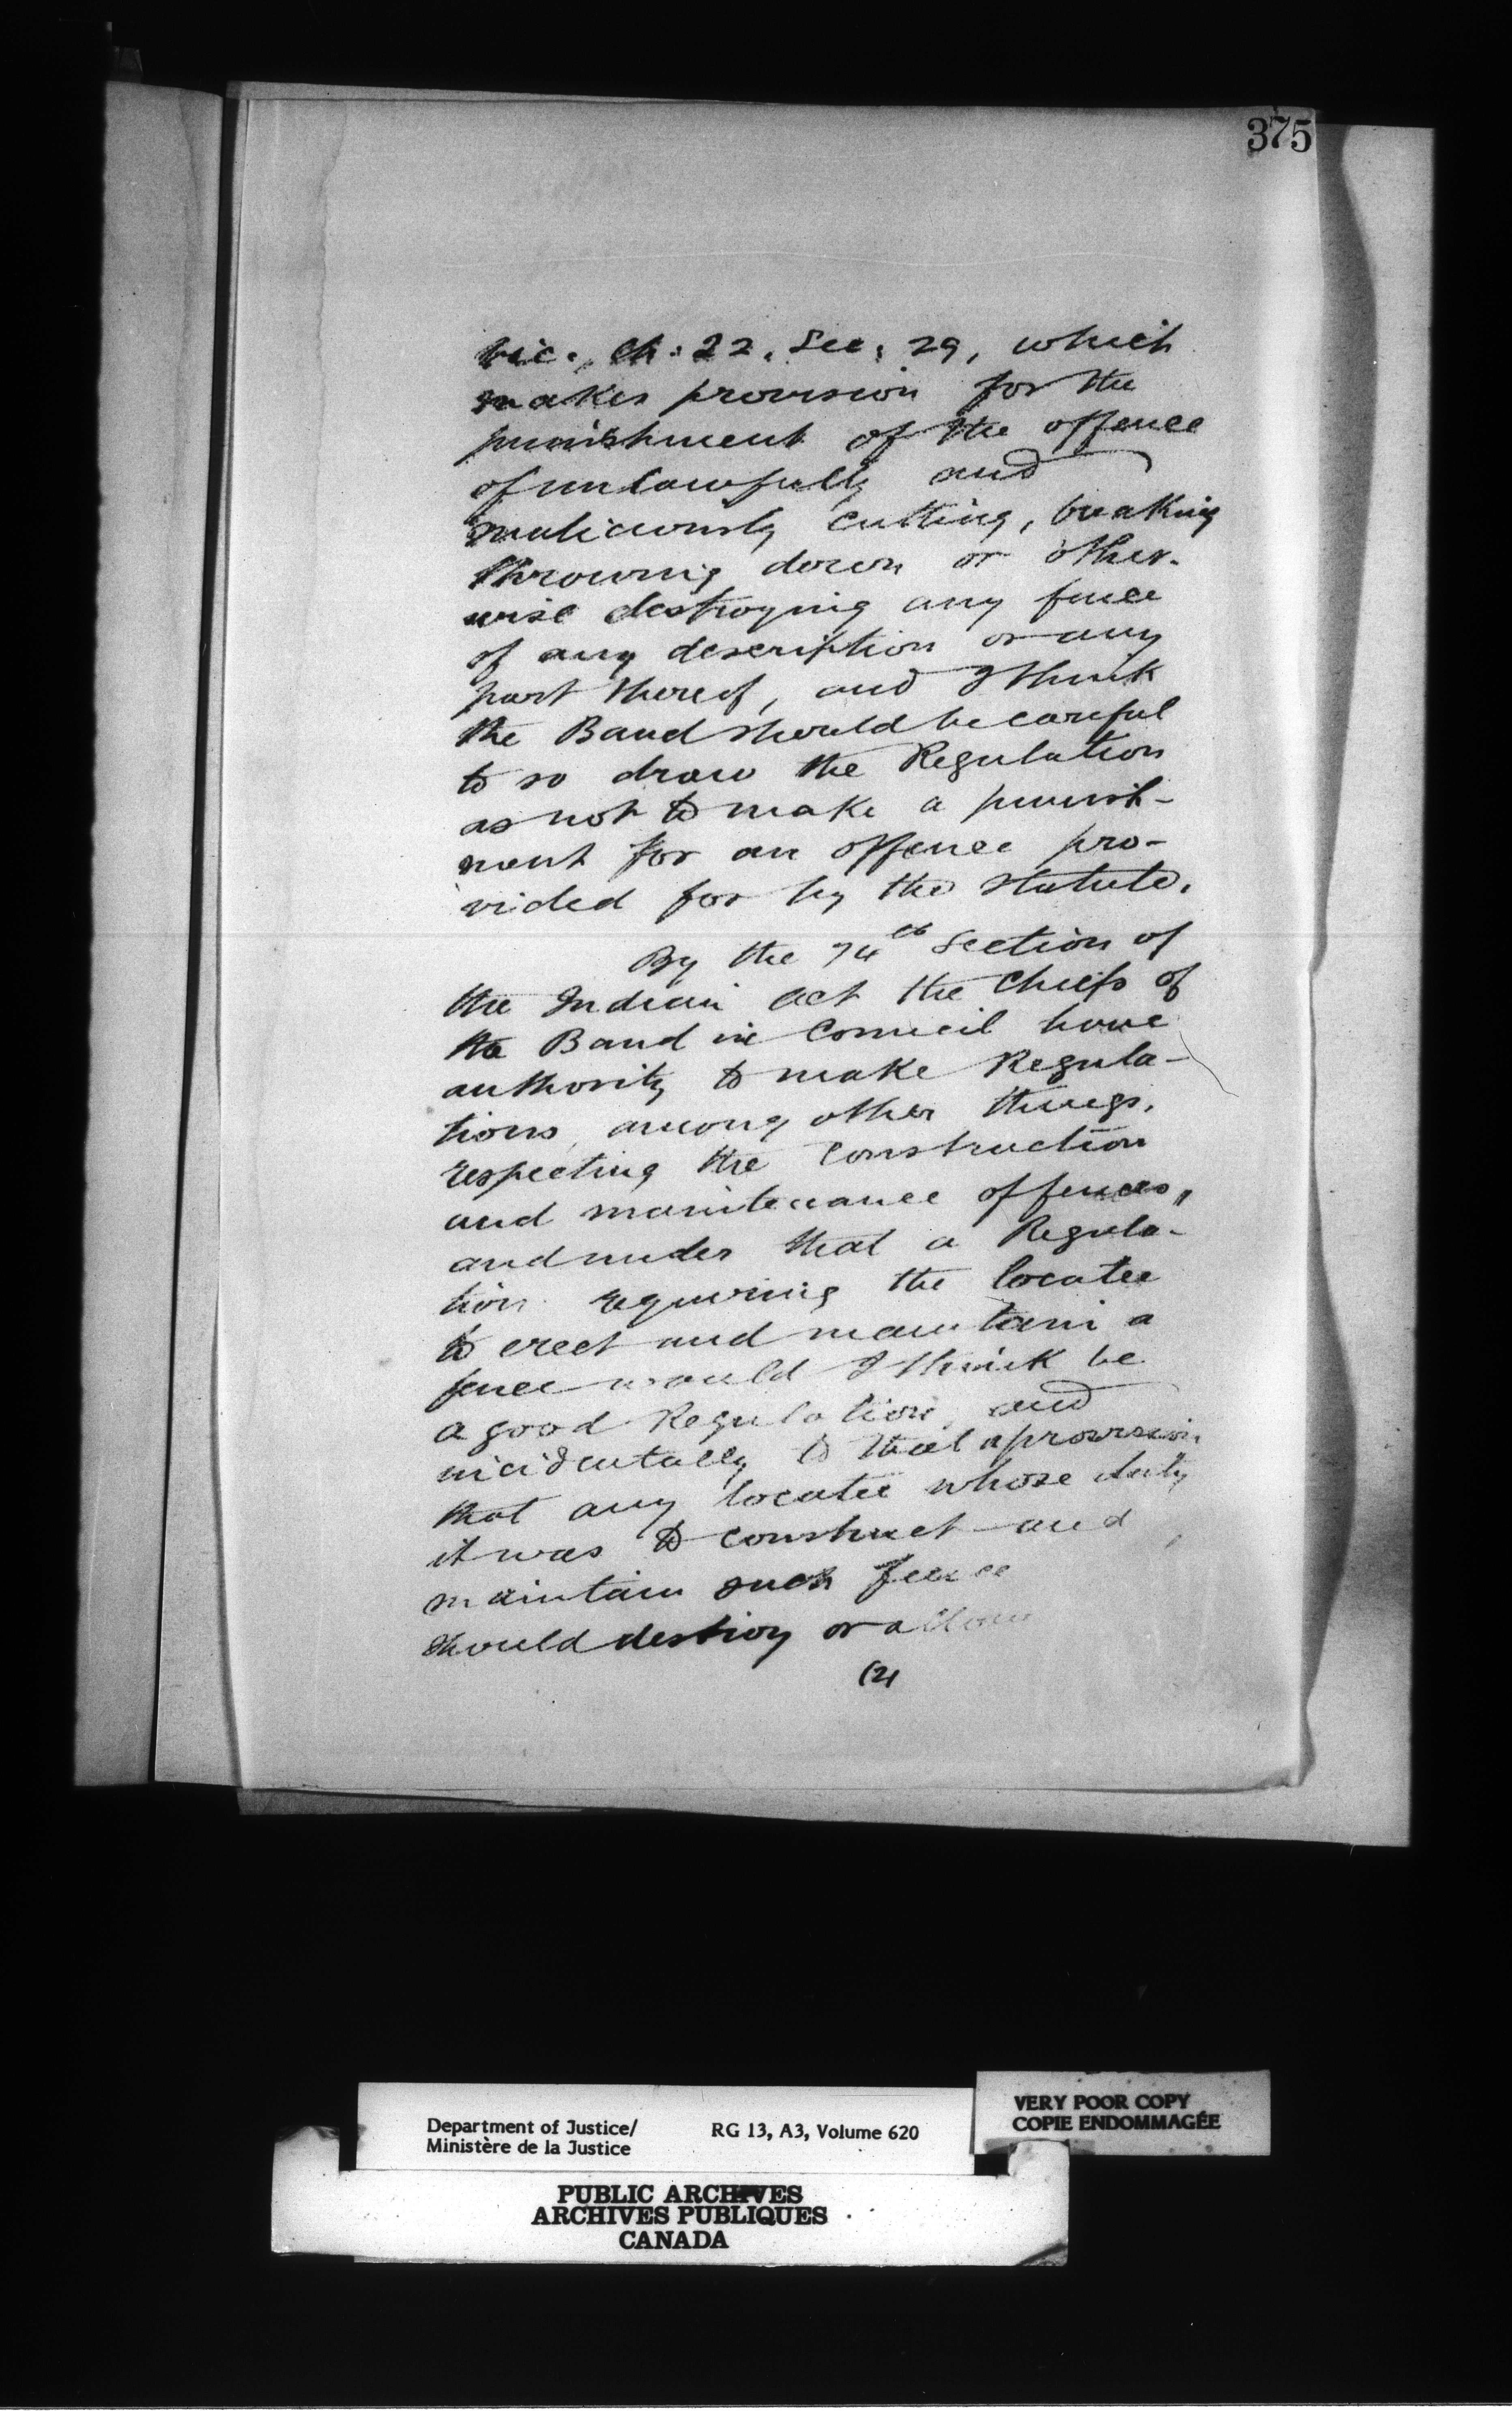 375
Vic. Ch: 22. Sec: 29, which
makes provision for the
punishment of the offence
of unlawfully and
maliciously cutting, breaking
throwing down or other-
wise destroying any fence
of any description or any
part thereof, and I think
the Band should be careful
to so draw the Regulation
as not to make a punish-
ment for an offence pro-
vided for by the Statute.
By the 74th Section of
the Indian Act the Chiefs of
the Band in Council have
authority to make Regula-
tions, among other things,
respecting the construction
and maintenance of fences,
and under that a Regula-
tion requiring the locatee
to erect and maintain a
fence would I think be
a good Regulation, and
incidentally to that a provision
that any locatee whose duty
it was to construct and
maintain such fence
should destroy or allow
(2)
Department of Justice/
Ministère de la Justice
RG 13, A3, Volume 620
VERY POOR COPY
COPIE ENDOMMAGÉE
PUBLIC ARCHIVES
ARCHIVES PUBLIQUES
CANADA